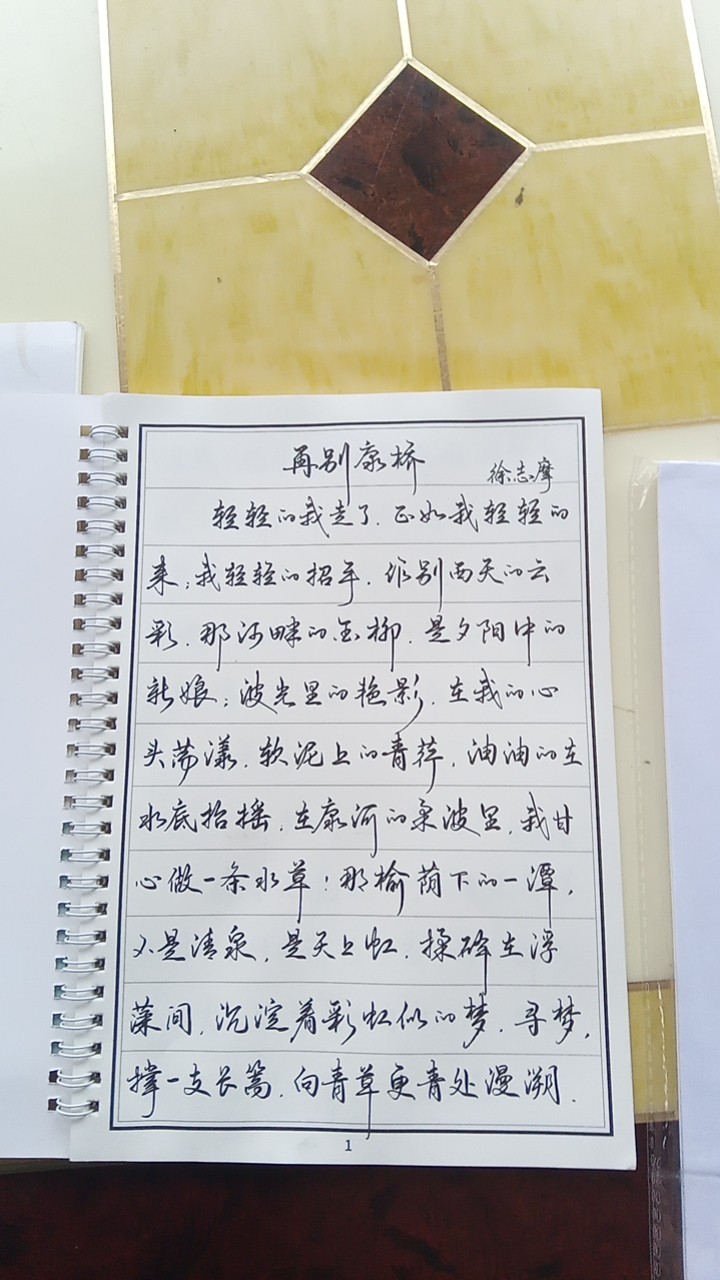 再别康桥
徐志摩
轻轻的我走了.正如我轻轻的
来;我轻轻的招手.作别西天的云
彩.那河畔的金柳.是夕阳中的
新娘;波光里的艳影.在我的心
头荡漾.软泥上的青荇.油油的在
水底招摇.在康河的柔波里.我甘
心做一条水草!那榆荫下的一潭,
不是清泉,是天上虹.揉碎在浮
藻间.沉淀着彩虹似的梦.寻梦,
撑一支长篙.向青草更青处漫溯.
1